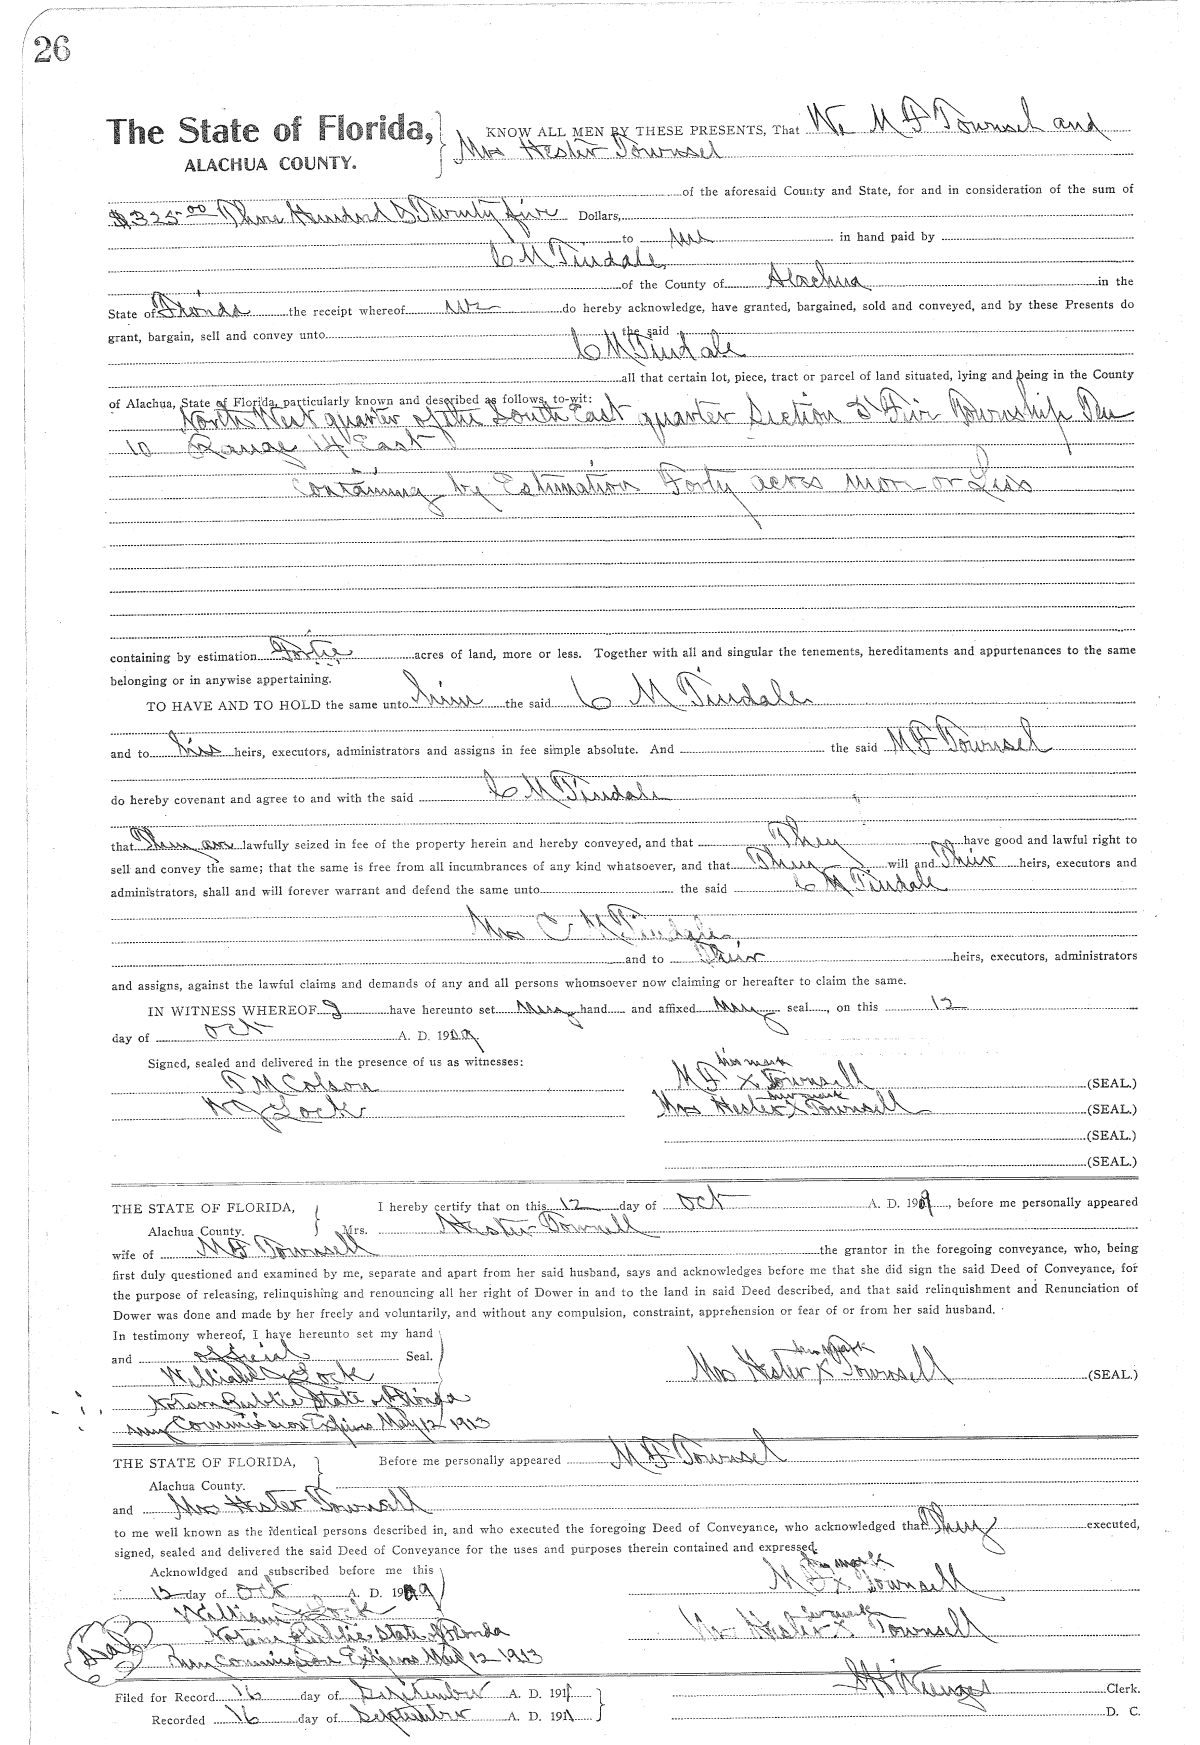 26
The State of Florida, KNOW ALL MEN BY THESE PRESENTS, That We M F Townsel and
ALACHUA COUNTY. Mrs Hester Townsel
of the aforesaid County and State, for and in consideration of the sum of
$325.00 Three Hundred & Twenty five Dollars,
to me in hand paid by
C M Tindale
of the County of Alachua in the
State of Florida the receipt whereof we do hereby acknowledge, have granted, bargained, sold and conveyed, and by these Presents do
grant, bargain, sell and convey unto the said
C M Tindale
all that certain lot, piece, tract or parcel of land situated, lying and being in the County
of Alachua, State of Florida, particularly known and described as follows, to-wit:
North West quarter of the South East quarter Section 5 Five Township Ten
10 Range 17 East
containing by Estimation Forty acres more or Less
containing by estimation Fortie acres of land, more or less. Together with all and singular the tenements, hereditaments and appurtenances to the same
belonging or in anywise appertaining.
TO HAVE AND TO HOLD the same unto him the said C M Tindale
and to his heirs, executors, administrators and assigns in fee simple absolute. And the said M F Townsel
do hereby covenant and agree to and with the said C M Tindale
that They are lawfully seized in fee of the property herein and hereby conveyed, and that They have good and lawful right to
sell and convey the same; that the same is free from all incumbrances of any kind whatsoever, and that They will and Their heirs, executors and
administrators, shall and will forever warrant and defend the same unto the said C M Tindale
Mrs C M Tindale
and to Their heirs, executors, administrators
and assigns, against the lawful claims and demands of any and all persons whomsoever now claiming or hereafter to claim the same.
IN WITNESS WHEREOF I have hereunto set hand and affixed seal, on this 12
day of Oct A. D. 1909
Signed, sealed and delivered in the presence of us as witnesses:
his mark
T M Colson M F X Townsell (SEAL.)
her mark
W J Lock Mrs Hester X Townsell (SEAL.)
(SEAL.)
(SEAL.)
THE STATE OF FLORIDA, I hereby certify that on this 12 day of Oct A. D. 1909, before me personally appeared
Alachua County. Mrs. Hester Townsell
wife of M F Townsell the grantor in the foregoing conveyance, who, being
first duly questioned and examined by me, separate and apart from her said husband, says and acknowledges before me that she did sign the said Deed of Conveyance, for
the purpose of releasing, relinquishing and renouncing all her right of Dower in and to the land in said Deed described, and that said relinquishment and Renunciation of
Dower was done and made by her freely and voluntarily, and without any compulsion, constraint, apprehension or fear of or from her said husband.
In testimony whereof, I have hereunto set my hand
and official Seal. her mark
William J Lock Mrs Hester X Townsell (SEAL.)
Notary Public State of Florida
my Commission Expires May 12 1913
THE STATE OF FLORIDA, Before me personally appeared M F Townsel
Alachua County.
and Mrs Hester Townsell
to me well known as the identical persons described in, and who executed the foregoing Deed of Conveyance, who acknowledged that They executed,
signed, sealed and delivered the said Deed of Conveyance for the uses and purposes therein contained and expressed.
Acknowldged and subscribed before me this his mark
12 day of Oct A. D. 1909 M F X Townsell
William J Lock her mark
Notary Public State of Florida Mrs Hester X Townsell
Seal my Commission Expires May 12 1913
Filed for Record 16 day of September A. D. 1911 Clerk.
Recorded 16 day of September A. D. 1911 D. C.